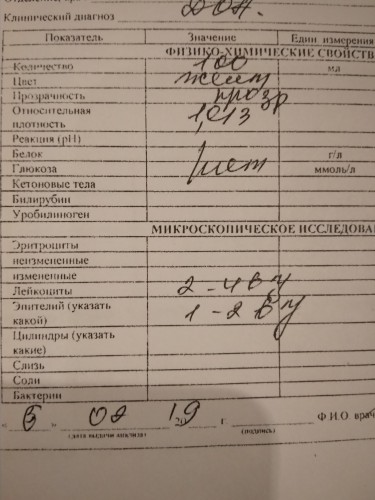 Клинический диагноз
Показатель Значение Един. измерения
ФИЗИКО-ХИМИЧЕСКИЕ СВОЙСТВ
Количество 100 мл
Цвет желт
Прозрачность прозр
Относительная 1,013
плотность
Реакция (pH)
Белок г/л
Глюкоза нет ммоль/л
Кетоновые тела
Билирубин
Уробилиноген
МИКРОСКОПИЧЕСКОЕ ИССЛЕДОВА
Эритроциты
неизмененные
измененные
Лейкоциты 2-4 в
Эпителий (указать 1-2 в
какой)
Цилиндры (указать
какие)
Слизь
Соли
Бактерии
« 6 02 2019 г. Ф.И.О. врач
(дата выдачи анализа) (подпись)